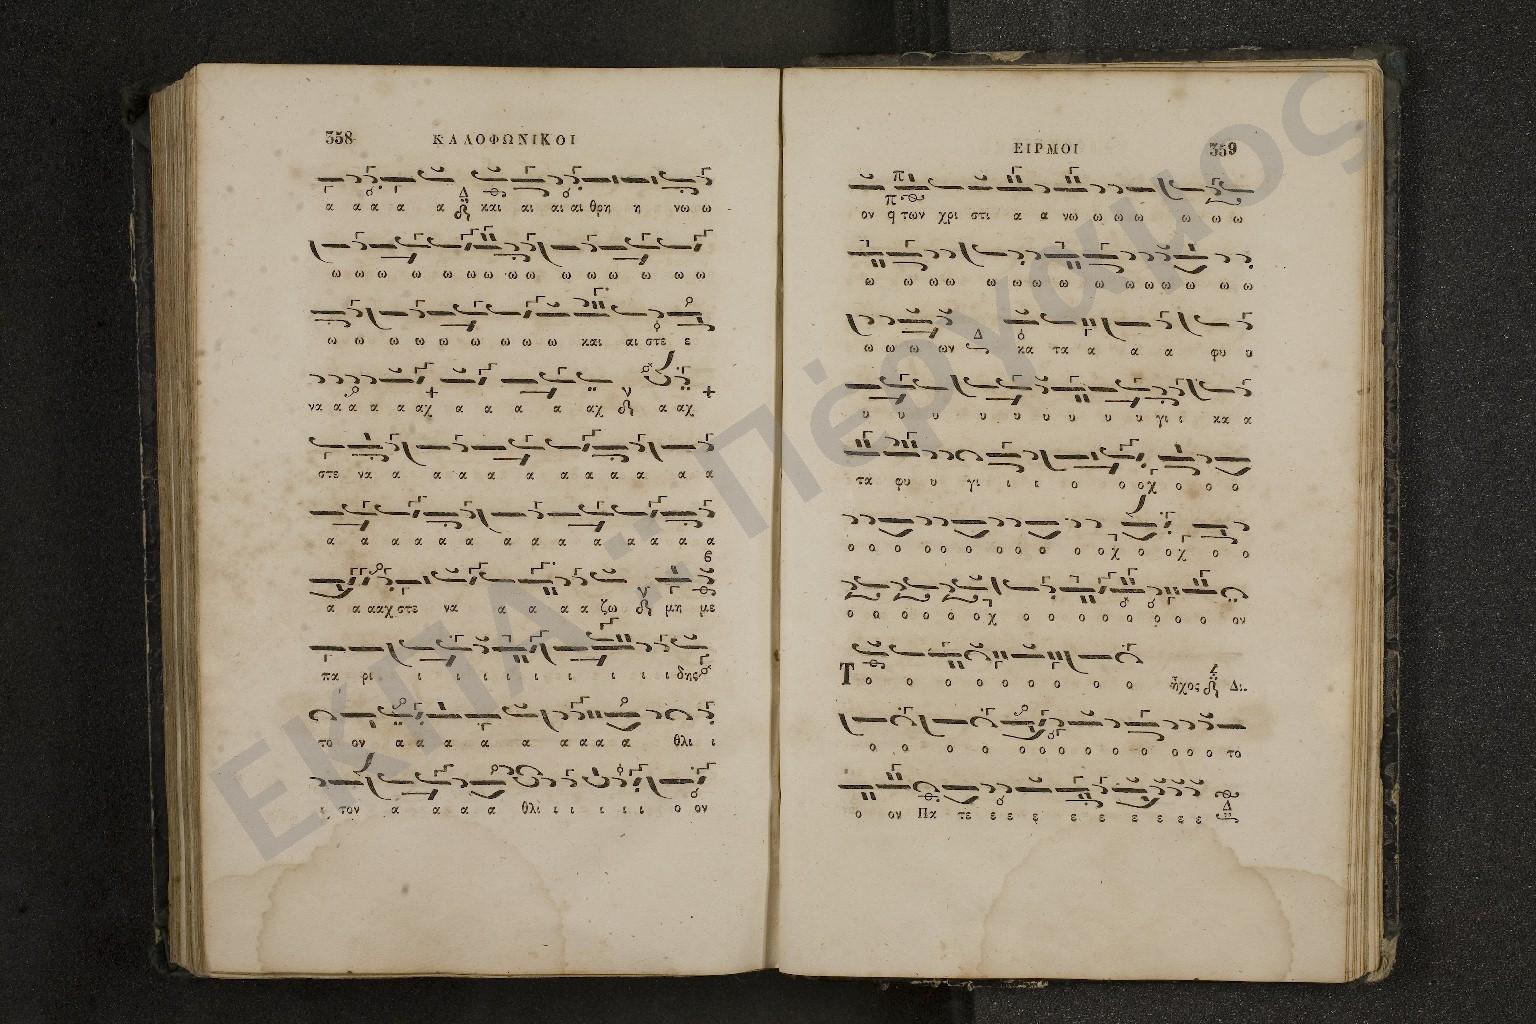 358 ΚΑΛΟΦΩΝΙΚΟΙ
α α α α α καὶ αι αι αι θρη η νω ω
ω ω ω ω ω ω ω ω ω ω ω ω ω ω ω
ω ω ω ω ω ω ω ω ω και αι στε ε
να α α α α αχ α α α α αχ α αχ
στε να α α α α α α α α α α α
α α α α α α α α α α α α
α α ααχ στε να α α α α ζω μη με
πα ρι ι ι ι ι ι ι ι ι ι δης
το ον α α α α α α α α α θλι ι
ι τον α α α α θλι ι ι ι ι ι ο ον
ΕΙΡΜΟΙ 359
ον των χρι στι α α νω ω ω ω ω ω ω
ω ω ω ω ω ω ω ω ω ω ω ω ω ω ω
ω ω ω ων Δ κα τα α α α φυ υ
υ υ υ υ υ υ υ υ υ υ γι ι κα α
τα φυ υ γι ι ι ο ο οχ ο ο ο
ο ο ο ο ο ο ο ο ο ο ο οχ ο οχ ο ο
ο ο ο ο ο ο χ ο ο ο ο ο ο ο ο ο ον
Το ο ο ο ο ο ο ο ο ο ἦχος Δι.
ο ο ο ο ο ο ο ο ο ο ο ο ο το
ο ον Πα τε ε ε ε ε ε ε ε ε ε
ΕΚΠΑ : Πέργαμος